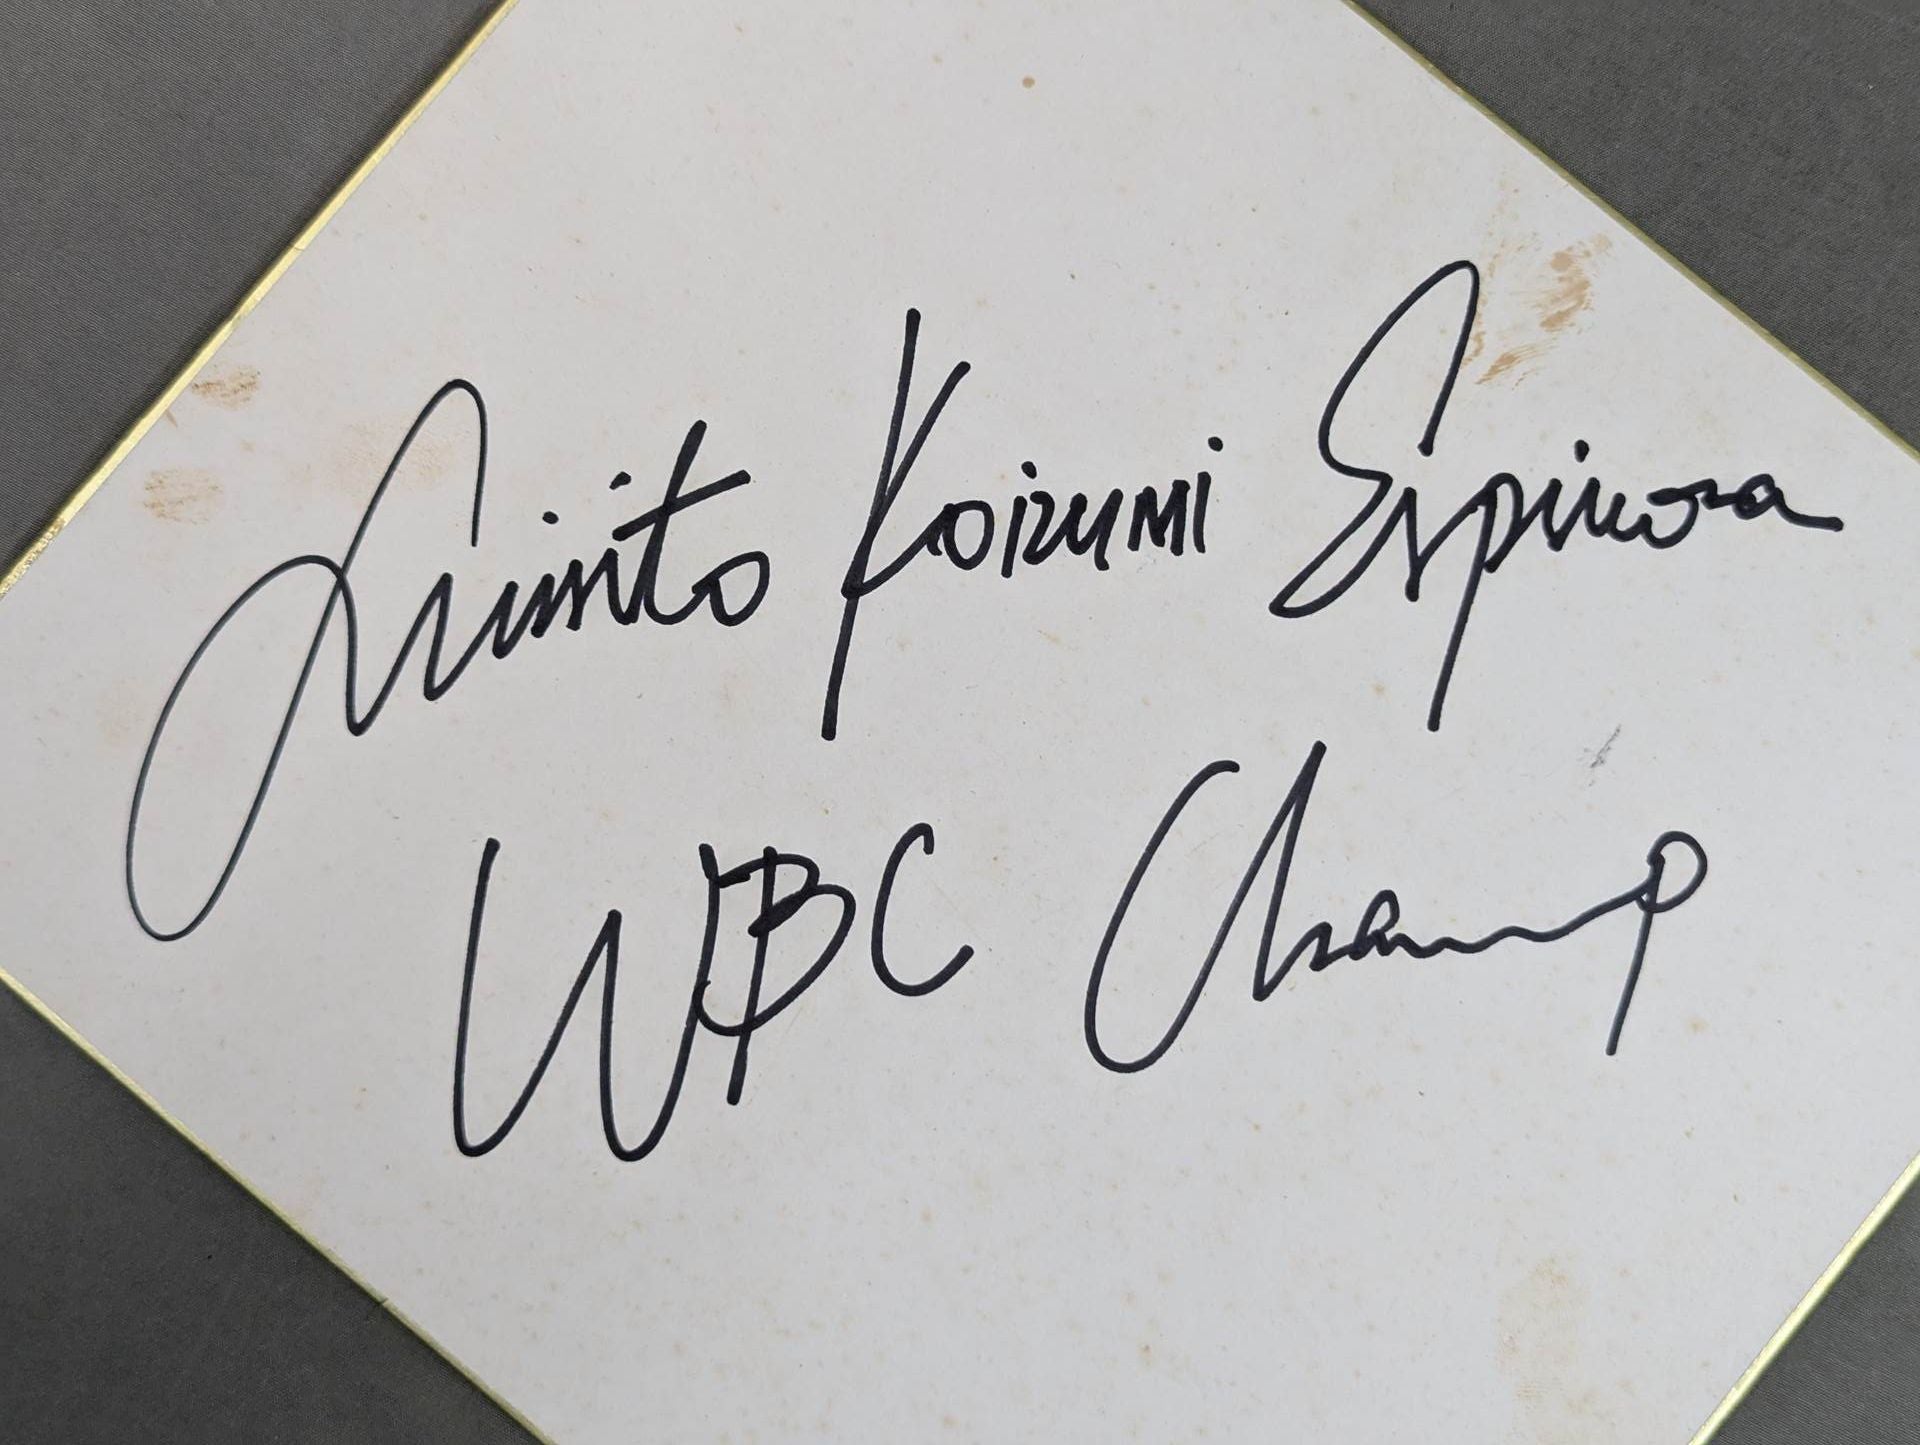 Luisito Koizumi Espinosa
WBC Champ